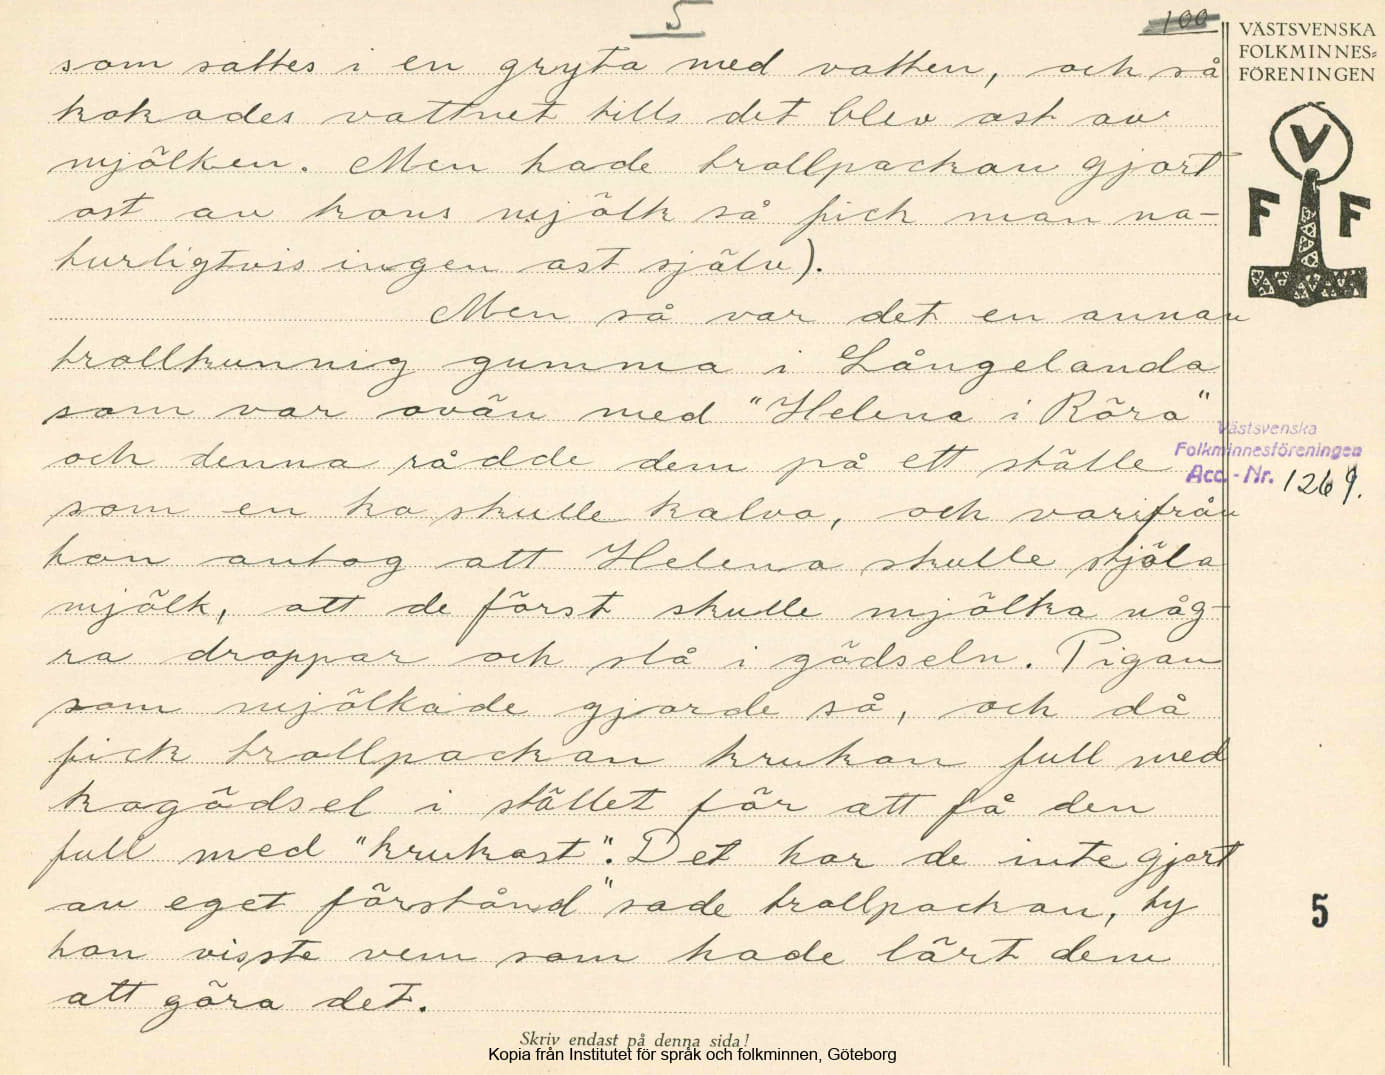 5
100
VÄSTSVENSKA
FOLKMINNES=
FÖRENINGEN
V
F F
som sattes i en gryta med vatten, och så
kokades vattnet tills det blev ost av
mjölken. Men hade trollpackan gjort
ost av kons mjölk så fick man na-
turligtvis ingen ost själv).
Men så var det en annan
trollkunnig gumma i Långelanda
som var ovän med "Helena i Röra"
och denna rådde dem på ett ställe
som en ko skulle kalva, och varifrån
hon antog att Helena skulle stjäla
mjölk, att de först skulle mjölka någ-
ra droppar och slå i gödseln. Pigan
som mjölkade gjorde så, och då
fick trollpackan krukan full med
kogödsel i stället för att få den
full med "krukost". Det har de inte gjort
av eget förstånd" sade trollpackan, ty
hon visste vem som hade lärt dem
att göra det.
Västsvenska
Folkminnesföreningen
Acc.-Nr. 1269.
5
Skriv endast på denna sida!
Kopia från Institutet för språk och folkminnen, Göteborg